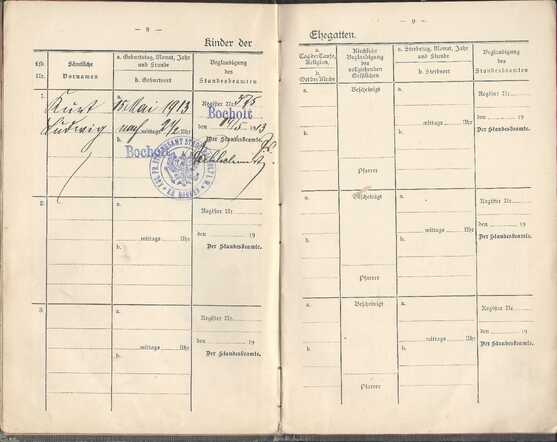 — 8 —
Kinder der
Lfde
Nr.
Sämtliche
Vornamen
a. Geburtstag, Monat, Jahr
und Stunde
b. Geburtsort
Beglaubigung
des
Standesbeamten
1.
Kurt
Ludwig
a. 15. Mai 1913
nachmittags 2½ Uhr
b. Bocholt
Register Nr.
Bocholt
den 19/5 1913
Der Standesbeamte.
2.
a.
mittags Uhr
b.
Register Nr.
den 19
Der Standesbeamte.
3
a.
mittags Uhr
b.
Register Nr.
den 19
Der Standesbeamte.
— 9 —
Ehegatten.
a.
Tag der Taufe,
Religion,
b.
Ort der Taufe
Kirchliche
Beglaubigung
des
vollziehenden
Geistlichen
a. Sterbetag, Monat, Jahr
und Stunde
b. Sterbeort
Beglaubigung
des
Standesbeamten
a.
b.
Bescheinigt
Pfarrer
a.
mittags Uhr
b.
Register Nr.
den 19
Der Standesbeamte.
a.
b.
Bescheinigt
Pfarrer
a.
mittags Uhr
b.
Register Nr.
den 19
Der Standesbeamte.
a.
b.
Bescheinigt
Pfarrer
a.
mittags Uhr
b.
Register Nr.
den 19
Der Standesbeamte.